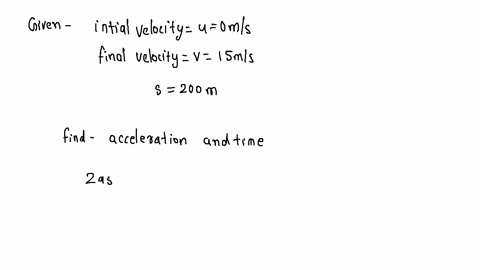 Given - intial velocity = u = 0 m/s
final velocity = v = 15 m/s
s = 200 m
find - acceleration and time
2as